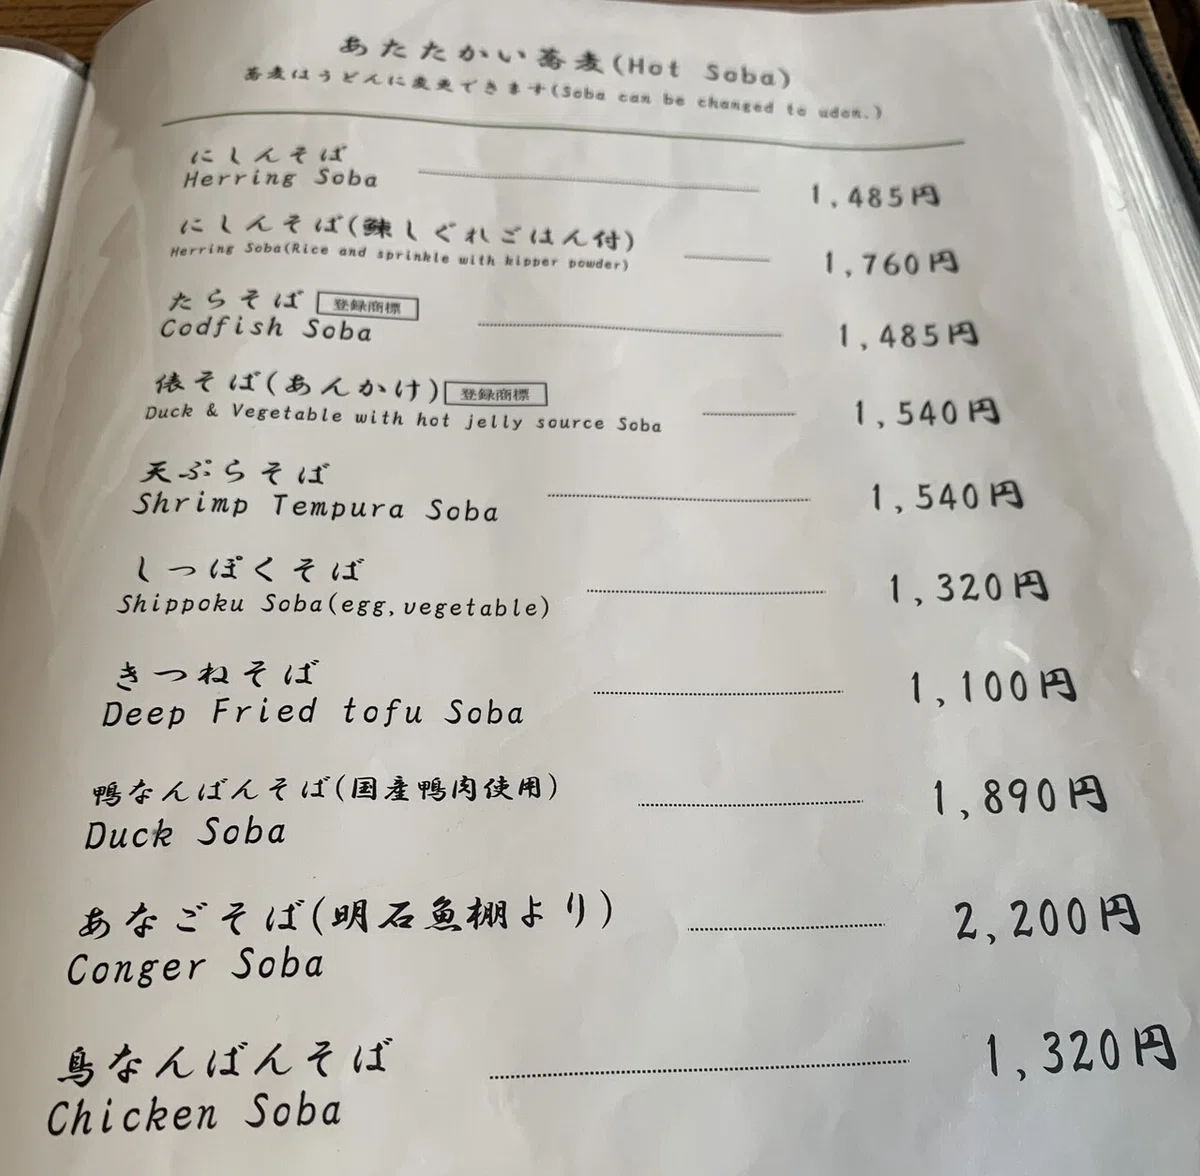 あたたかい蕎麦(Hot Soba)
蕎麦はうどんに変更できます(Soba can be changed to udon.)
にしんそば
Herring Soba 1,485円
にしんそば(鰊しぐれごはん付)
Herring Soba(Rice and sprinkle with kipper powder) 1,760円
たらそば 登録商標
Codfish Soba 1,485円
俵そば(あんかけ) 登録商標
Duck & Vegetable with hot jelly source Soba 1,540円
天ぷらそば
Shrimp Tempura Soba 1,540円
しっぽくそば
Shippoku Soba(egg,vegetable) 1,320円
きつねそば
Deep Fried tofu Soba 1,100円
鴨なんばんそば(国産鴨肉使用)
Duck Soba 1,890円
あなごそば(明石魚棚より)
Conger Soba 2,200円
鳥なんばんそば
Chicken Soba 1,320円